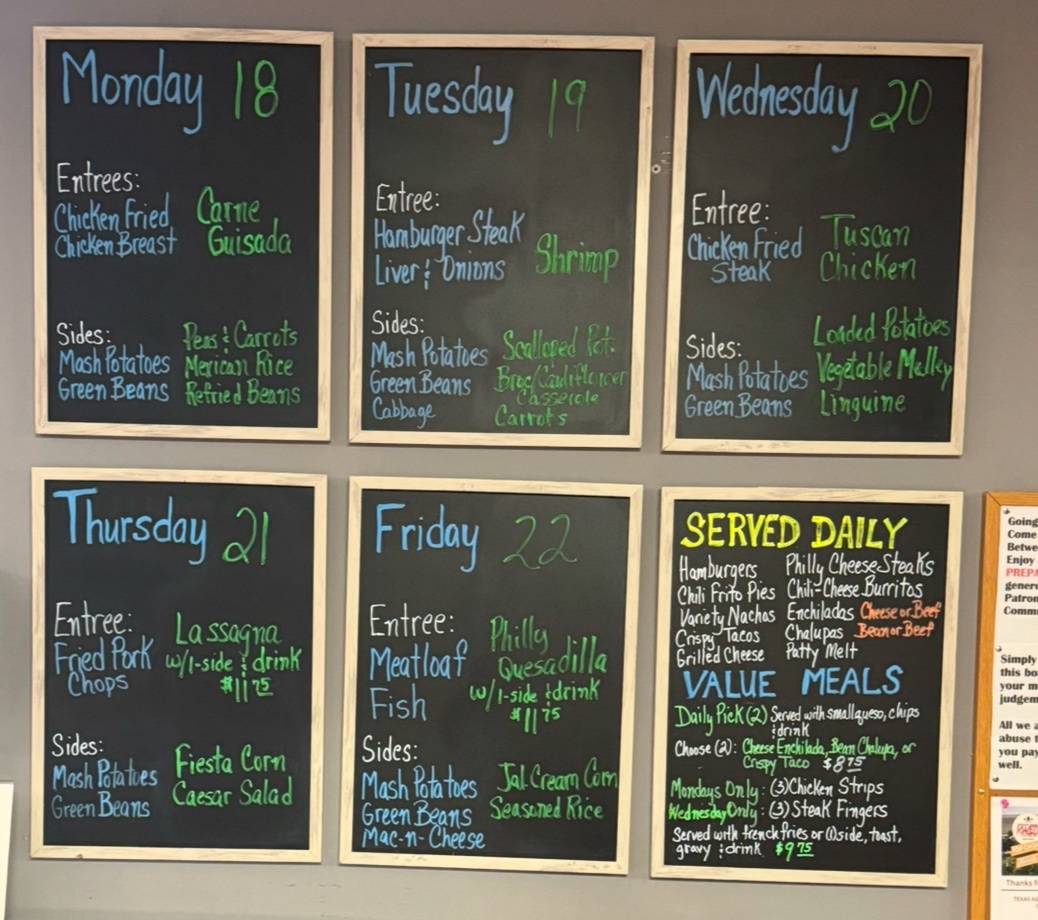 Monday 18
Entrees:
Chicken Fried
Chicken Breast
Carne
Guisada
Sides:
Mash Potatoes
Green Beans
Peas & Carrots
Mexican Rice
Refried Beans
Tuesday 19
Entree:
Hamburger Steak
Liver & Onions
Shrimp
Sides:
Mash Potatoes
Green Beans
Cabbage
Scalloped Pot.
Broc/Cauliflower
Casserole
Carrots
Wednesday 20
Entree:
Chicken Fried
Steak
Tuscan
Chicken
Sides:
Mash Potatoes
Green Beans
Loaded Potatoes
Vegetable Medley
Linguine
Thursday 21
Entree:
Fried Pork
Chops
Lassagna
w/1-side & drink
$11 75
Sides:
Mash Potatoes
Green Beans
Fiesta Corn
Caesar Salad
Friday 22
Entree:
Meatloaf
Fish
Philly
Quesadilla
w/1-side & drink
$11 75
Sides:
Mash Potatoes
Green Beans
Mac-n-Cheese
Jal. Cream Corn
Seasoned Rice
SERVED DAILY
Hamburgers
Chili Frito Pies
Variety Nachos
Crispy Tacos
Grilled Cheese
Philly Cheese-Steaks
Chili-Cheese Burritos
Enchiladas Cheese or Beef
Chalupas Bean or Beef
Patty Melt
VALUE MEALS
Daily Pick (2) Served with small queso, chips
& drink
Choose (2): Cheese Enchilada, Bean Chalupa, or
Crispy Taco $8 75
Mondays Only: (3) Chicken Strips
Wednesday Only: (3) Steak Fingers
Served with french fries or (1) side, toast,
gravy & drink $9 75
Going
Come
Betwe
Enjoy
PREPA
genero
Patron
Comm
Simply
this bo
your m
judgem
All we a
abuse t
you pay
well.
Thanks f